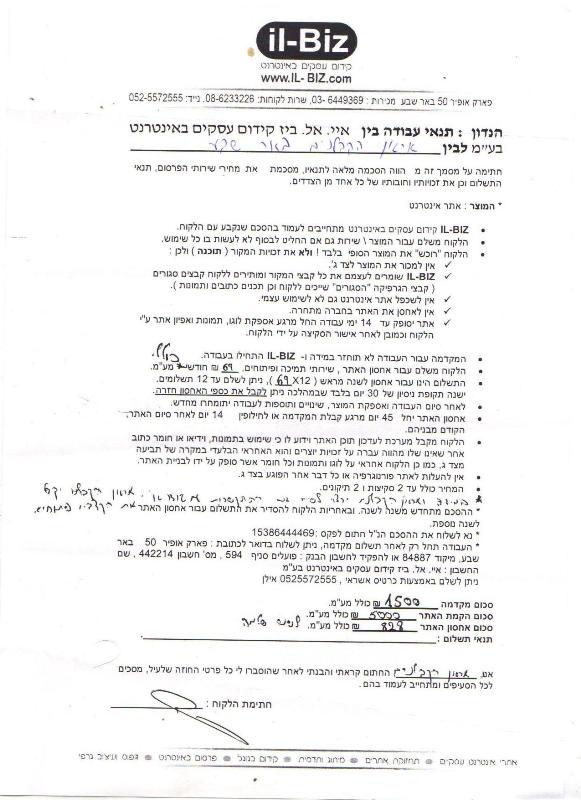 il-Biz
קידום עסקים באינטרנט
www.IL-BIZ.com
פארק אופיר 50 באר שבע מכירות : 03-6449369, שרות לקוחות: 08-6233226, נייד: 052-5572555
הנדון : תנאי עבודה בין איי. אל. ביז קידום עסקים באינטרנט
בע"מ לבין ארגון הקבלנים באר שבע
חתימה על מסמך זה מ הווה הסכמה מלאה לתנאיו, מסכמת את מחירי שירותי הפרסום, תנאי
התשלום וכן את זכויותיו וחובותיו של כל אחד מן הצדדים.
* המוצר : אתר אינטרנט
• IL-BIZ קידום עסקים באינטרנט מתחייבים לעמוד בהסכם שנקבע עם הלקוח.
• הלקוח משלם עבור המוצר \ שירות גם אם החליט לבסוף לא לעשות בו כל שימוש.
• הלקוח "רוכש" את המוצר הסופי בלבד ! ולא את זכויות המקור ( תוכנה ) ולכן :
✓ אין למכור את המוצר לצד ג'.
✓ IL-BIZ שומרים לעצמם את כל קבצי המקור ומותירים ללקוח קבצים סגורים
( קבצי הגרפיקה "הסגורים" שייכים ללקוח וכן תכנים כתובים ותמונות ).
✓ אין לשכפל אתר אינטרנט גם לא לשימוש עצמי.
✓ אין לאחסן את האתר בחברה מתחרה.
✓ אתר יסופק עד 14 ימי עבודה החל מרגע אספקת לוגו, תמונות ואפיון אתר ע"י
הלקוח וכמובן לאחר אישור הסקיצה על ידי הלקוח.
• המקדמה עבור העבודה לא תוחזר במידה ו- IL-BIZ התחילו בעבודה.
• הלקוח משלם עבור אחסון האתר , שירותי תמיכה ופיתוחים. 69 ₪ חודשי כולל מע"מ.
• התשלום הינו עבור אחסון לשנה מראש ( 69 X12 ), ניתן לשלם עד 12 תשלומים.
ישנה תקופת ניסיון של 30 יום בלבד שבמהלכה ניתן לקבל את כספי האחסון חזרה.
• לאחר סיום העבודה ואספקת המוצר, שינויים ותוספות לעבודה יתומחרו מחדש.
• אחסון האתר יחל 45 יום מרגע קבלת המקדמה או לחילופין 14 יום לאחר סיום האתר,
הקודם מבניהם.
• הלקוח מקבל מערכת לעדכון תוכן האתר וידוע לו כי שימוש בתמונות, וידיאו או חומר כתוב
אחר שאינו שלו מהווה עברה על זכויות יוצרים והוא האחראי הבלעדי במקרה של תביעה
מצד ג, כמו כן הלקוח אחראי על לוגו ותמונות וכל חומר אשר סופק על ידו לבניית האתר.
• אין להעלות לאתר פורנוגרפיה או כל דבר אחר הפוגע בצד ג.
• המחיר כולל עד 2 סקיצות ו 2 תיקונים.
* ההסכם מתחדש משנה לשנה. ובאחריות הלקוח להסדיר את התשלום עבור אחסון האתר
לשנה נוספת.
* נא לשלוח את ההסכם הנ"ל חתום לפקס :15386444469
* העבודה תחל רק לאחר תשלום מקדמה, ניתן לשלוח בדואר לכתובת : פארק אופיר 50 באר
שבע, מיקוד 84887 או להפקיד לחשבון הבנק : פועלים סניף 594 , מס' חשבון 442214 , שם
החשבון : איי. אל. ביז קידום עסקים באינטרנט בע"מ
ניתן לשלם באמצעות כרטיס אשראי , 0525572555 אילן
סכום מקדמה 1500 ₪ כולל מע"מ.
סכום הקמת האתר 5000 ₪ כולל מע"מ.
סכום אחסון האתר 828 ₪ כולל מע"מ. לשנה שלמה
תנאי תשלום :
אני, ארגון הקבלנים החתום קראתי והבנתי לאחר שהוסברו לי כל פרטי החוזה שלעיל, מסכים
לכל הסעיפים ומתחייב לעמוד בהם.
חתימת הלקוח :
אתרי אינטרנט עסקיים • תחזוקת אתרים • מיתוג ותדמית • קידום בגוגל • פרסום באינטרנט • דפוס ועיצוב גרפי